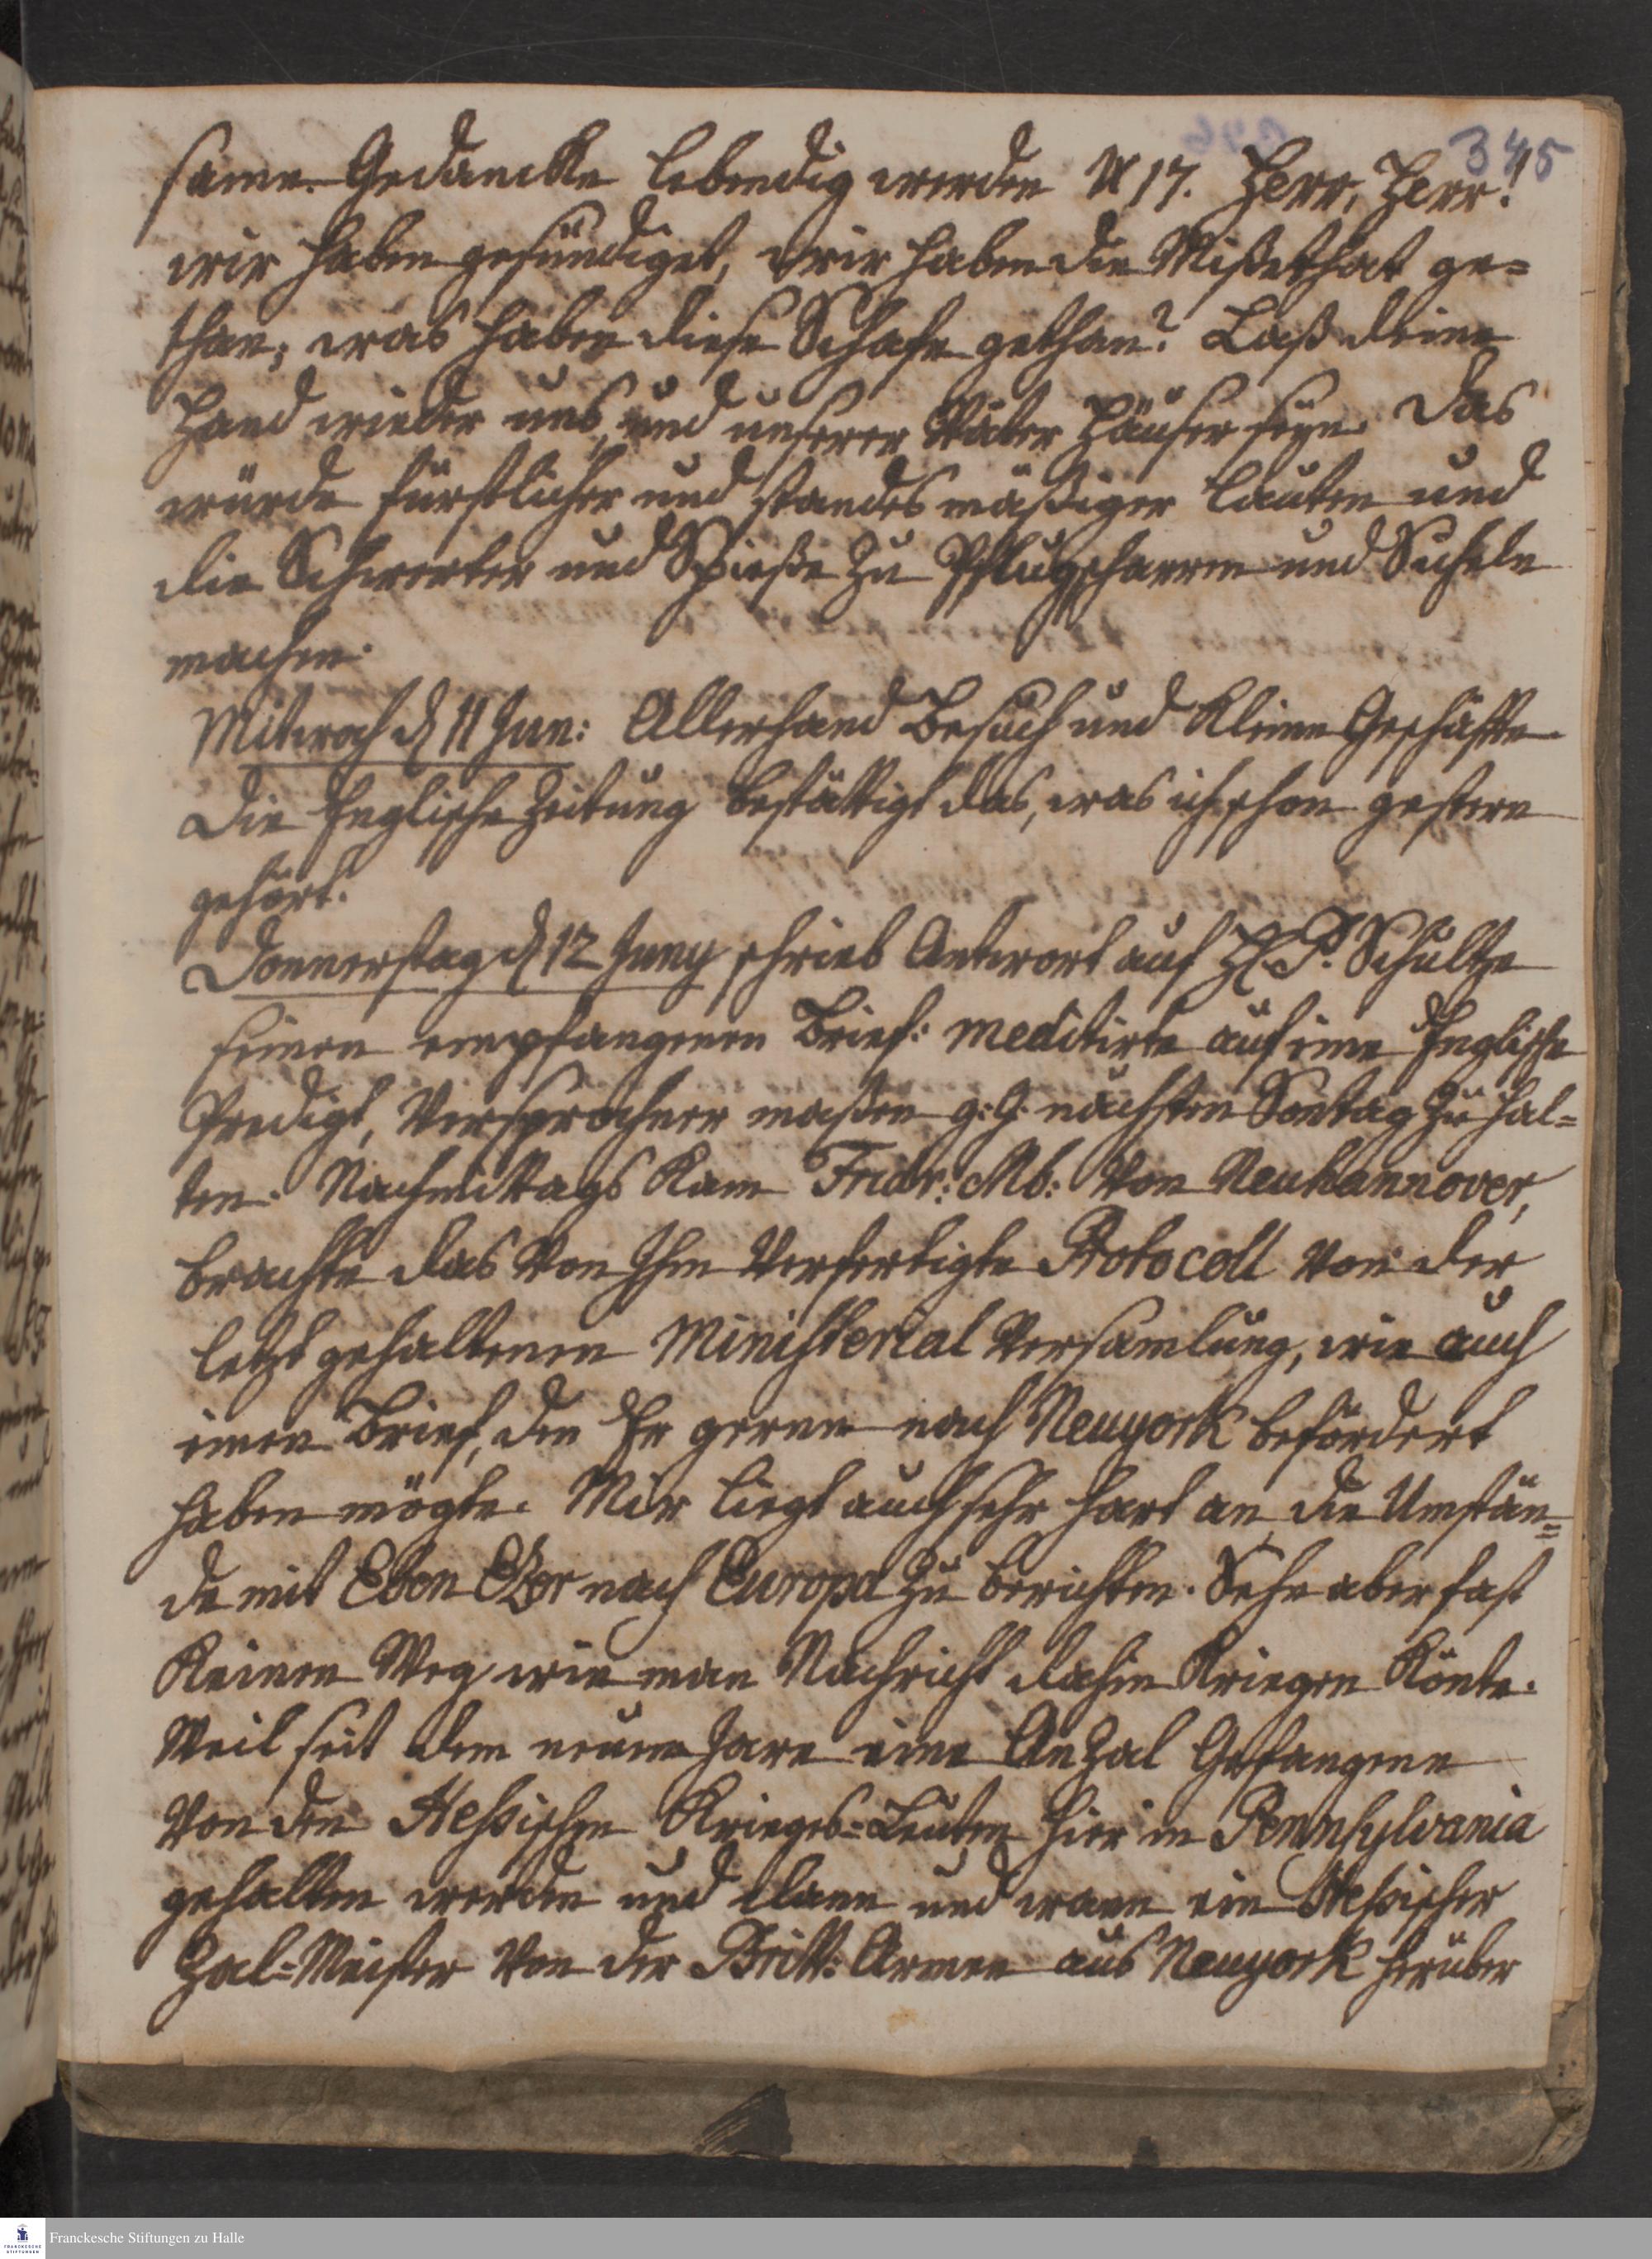 345
same Gedancke lebendig werden V 17. Herr, Herr!
wir haben gesündiget, wir haben die Mißethat ge=
than; was haben diese Schafe gethan? Laß deine
Hand wieder uns, und unserer Väter Häuser seyn. Das
würde fürstlicher und standesmäßiger lauten und
die Schwerter und Spieße zu Pflugscharren und Sicheln
machen.
Mitwoch d 11 Jun: Allerhand Besuch und kleine Geschäfte.
Die Englische Zeitung bestättigt das, was ich schon gestern
gehört.
Donnerstag d 12 Juny schrieb Antwort auf H. P. Schultze
seinen empfangenen Brief: meditirte auf eine Englische
Predigt, versprochner maßen g: G. nächsten Sontag zu hal=
ten. Nachmittags kam Fridr: Mb: von Neuhannover,
brachte das von Ihm verfertigte Protocoll von der
letzt gehaltenen Ministerial Versamlung, wie auch
einen Brief, den Er gerne nach Neuyork befördert
haben mögte. Mir liegt auch sehr hart an, die Umstän=
de mit Eben Ezer nach Europa zu berichten. Sehe aber fast
keinen Weg wie man Nachricht dahin kriegen könte.
Weil seit dem neuen Jare eine Anzal Gefangene
von den Hessischen Krieges=Leuten hier in Pennsylvania
gehalten werden und dann und wann ein Hessischer
Zal=Meister von der Britt: Armee aus Neuyork herüber
Franckesche Stiftungen zu Halle